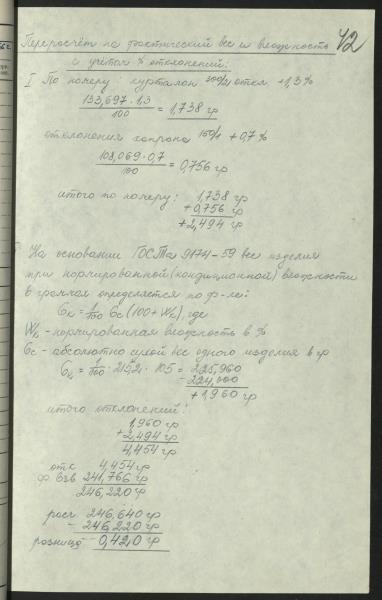 42
Перерасчёт на фактический вес и влажность
с учётом % отклонений:
I По номеру: курталон 300/2 откл. +1,3%
133,697 · 1,3 / 100 = 1,738 гр
отклонения капрона 150/1 +0,7%
108,069 · 0,7 / 100 = 0,756 гр
итого по номеру: 1,738 гр
+0,756 гр
+2,494 гр
На основании ГОСТа 9174-59 вес изделия
при нормированной (кондиционной) влажности
в граммах определяется по ф-ле:
Gк = 1/100 Gс (100+Wк), где
Wк - нормированная влажность в %
Gс - абсолютно сухой вес одного изделия в гр
Gк = 1/100 · 215,2 · 105 = 225,960
- 224,000
+1,960 гр
итого отклонений:
1,960 гр
+ 2,494 гр
4,454 гр
отк 4,454 гр
ф. взв 241,766 гр
246,220 гр
расч. 246,640 гр
- 246,220 гр
разница - 0,420 гр